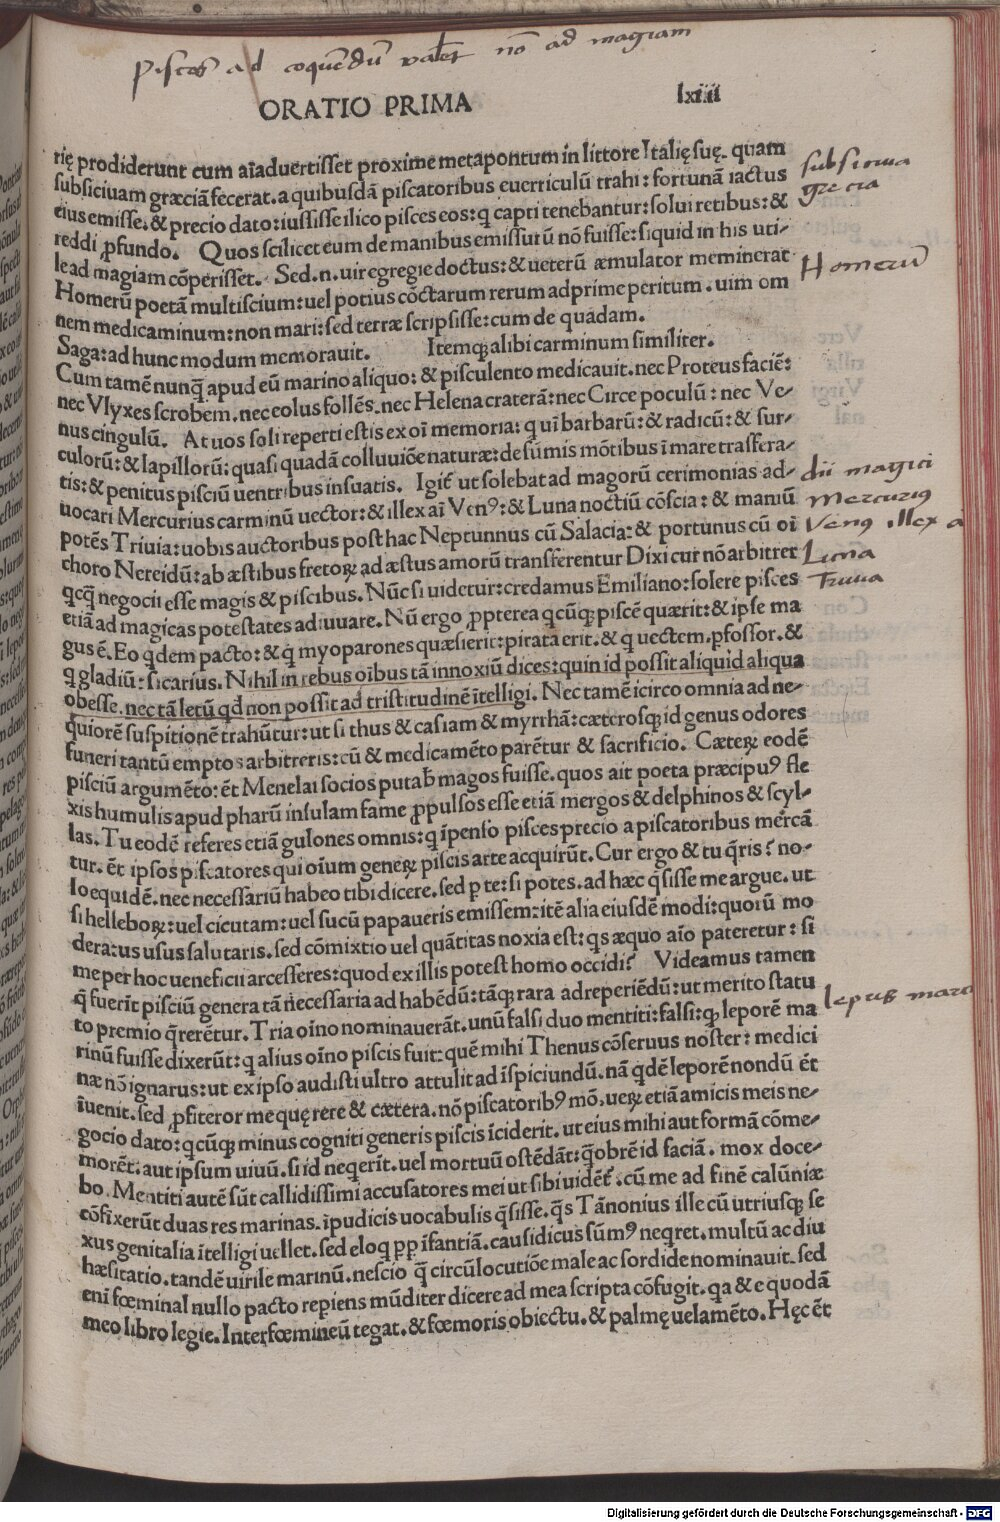 Pisces ad coquendū valēt nō ad magiam
ORATIO PRIMA
lxiiii
rię prodiderunt cum aīaduertisset proxime metapontum in littore Italię suę. quam
subsiciuam græciā fecerat. a quibusdā piscatoribus euerriculū trahi: fortunā iactus
eius emisse. & precio dato: iussisse ilico pisces eos: q capti tenebantur: solui retibus: &
reddi ꝓfundo. Quos scilicet eum de manibus emissurū nō fuisse: siquid in his uti-
le ad magiam cōperisset. Sed.n. uir egregie doctus: & ueterū æmulator meminerat
Homerū poetā multiscium: uel potius cōctarum rerum adprime peritum. uim om
nem medicaminum: non mari: sed terræ scripsisse: cum de quadam.
Saga: ad hunc modum memorauit. Itemqꝫ alibi carminum similiter.
Cum tamē nunq̄ apud eū marino aliquo: & pisculento medicauit. nec Proteus faciē:
nec Vlyxes scrobem. nec eolus follēs. nec Helena craterā: nec Circe poculū: nec Ve-
nus cingulū. At uos soli reperti estis ex oī memoria: q uī barbarū: & radicū: & sur-
culorū: & lapillorū: quasi quadā colluuiōe naturæ: de sūmis mōtibus ī mare trāsfera-
tis: & penitus pisciū uentribus insuatis. Igiť ut solebat ad magorū cerimonias ad-
uocari Mercurius carminū uector: & illex aī Venꝰ: & Luna noctiū cōscia: & maniū
potēs Triuia: uobis auctoribus post hac Neptunnus cū Salacia: & portunus cū oī
choro Nereidū: ab æstibus fretoꝝ ad æstus amorū transferentur Dixi cur nō arbitrer
qcq̄ negocii esse magis & piscibus. Nūc si uidetur: credamus Emiliano: solere pisces
etiā ad magicas potestates adiuuare. Nū ergo ꝓpterea qcūqꝫ piscē quærit: & ipse ma
gus ē. Eo qdem pacto: & q myoparones quæsierit: pirata erit. & q uectem. ꝑfossor. &
q gladiū: sicarius. Nihil in rebus oībus tā innoxiū dices: quin id possit aliquid aliqua
obesse. nec tā letū qd non possit ad tristitudinē ītelligi. Nec tamē icirco omnia ad ne-
quiorē suspitionē trahūtur: ut si thus & casiam & myrrhā: cæterosqꝫ id genus odores
funeri tantū emptos arbitreris: cū & medicamēto parētur & sacrificio. Cæteꝝ eodē
pisciū argumēto: ēt Menelai socios putab̄ magos fuisse. quos ait poeta præcipuꝰ fle
xis humulis apud pharū insulam fame ꝓpulsos esse etiā mergos & delphinos & scyl-
las. Tu eodē referes etiā gulones omnis: q īpenso pisces precio a piscatoribus mercā
tur. ēt ipsos piscatores qui oīum geneꝝ piscis arte acquirūt. Cur ergo & tu q̄ris? no-
lo equidē. nec necessariū habeo tibi dicere. sed p te: si potes. ad hæc q̄sisse me argue. ut
si helleboꝝ: uel cicutam: uel sucū papaueris emissem: itē alia eiusdē modi: quorū mo
deratus usus salutaris. sed cōmixtio uel quātitas noxia est: qs æquo aīo pateretur: si
me per hoc ueneficii arcesseres: quod ex illis potest homo occidi? Videamus tamen
q̄ fuerīt pisciū genera tā necessaria ad habēdū: tāqꝫ rara ad reperiēdū: ut merito statu
to premio q̄rerētur. Tria oīno nominauerāt. unū falsi duo mentiti: falsi: qꝫ leporē ma
rinū fuisse dixerūt: q alius oīno piscis fuit: quē mihi Thenus cōseruus noster: medici
næ nō ignarus: ut ex ipso audisti ultro attulit ad īspiciundū. nā qdē leporē nondū ēt
īuenit. sed ꝓfiteror me quęrere & cætera. nō piscatoribꝰ mō. ueꝝ etiā amicis meis ne-
gocio dato: qcūqꝫ minus cogniti generis piscis īciderit. ut eius mihi aut formā cōme-
morēt: aut ipsum uiuū. si id neqerīt. uel mortuū ostēdāt: q̄obrē id faciā. mox doce-
bo. Mentiti autē sūt callidissimi accusatores mei ut sibi uidēť. cū me ad finē calūniæ
cōfixerūt duas res marinas. īpudicis uocabulis q̄sisse. q̄s Tānonius ille cū utriusqꝫ se
xus genitalia ītelligi uellet. sed eloq ꝓꝑ īfantiā. causidicus sūmꝰ neqret. multū ac diu
hæsitatio. tandē uirile marinū. nescio q̄ circūlocutiōe male ac sordide nominauit. sed
enī fœminal nullo pacto repiens mūditer dicere ad mea scripta cōfugit. qa & e quodā
meo libro legie. Interfœmineū tegat. & fœmoris obiectu. & palmę uelamēto. Hęc ēt
subsiciua
grecia
Homerū
dii magici
Mercurius
Venꝰ illex a
Luna
Triuia
lepus mari
Digitalisierung gefördert durch die Deutsche Forschungsgemeinschaft - DFG